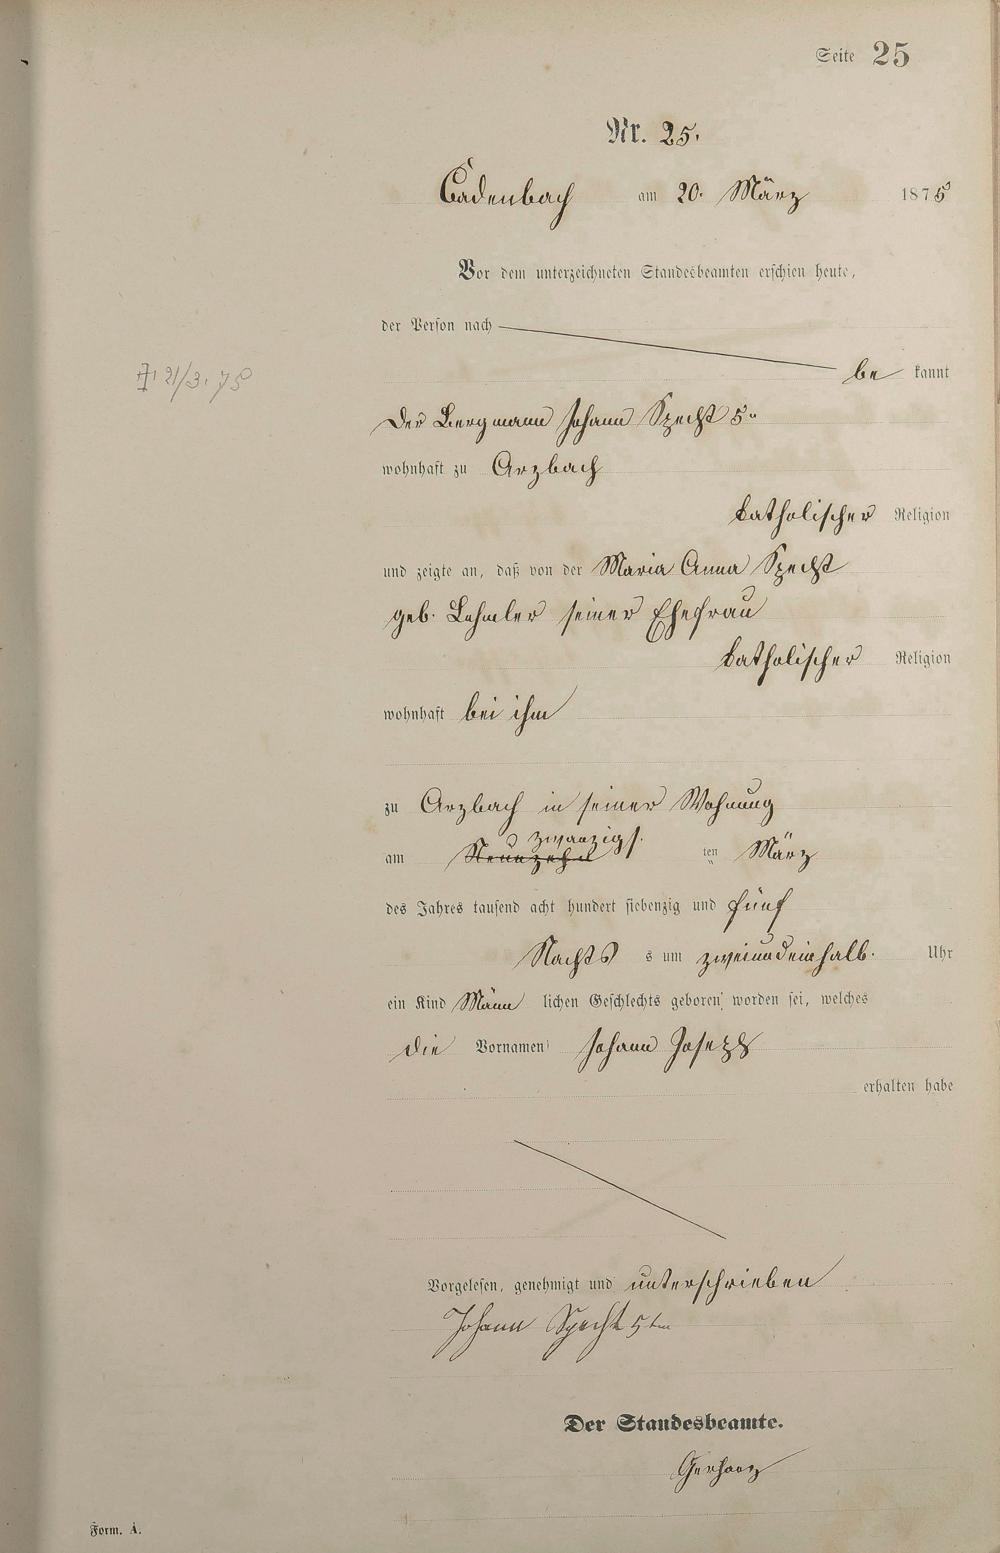 Seite 25
Nr. 25.
Cadenbach am 20. März 1875
Vor dem unterzeichneten Standesbeamten erschien heute,
der Person nach
be kannt
21/3. 75
Der Bergmann Johann Specht 5r
wohnhaft zu Arzbach
katholischer Religion
und zeigte an, daß von der Maria Anna Specht
geb. Lehmler seiner Ehefrau
katholischer Religion
wohnhaft bei ihm
zu Arzbach in seiner Wohnung
zwanzigs.
am Neunzehn ten März
des Jahres tausend acht hundert siebenzig und fünf
Nachts s um zweiundeinhalb. Uhr
ein Kind Männ lichen Geschlechts geboren worden sei, welches
die Vornamen Johann Joseph
erhalten habe
Vorgelesen, genehmigt und unterschrieben
Johann Specht 5ten
Der Standesbeamte.
Gerharz
Form. A.